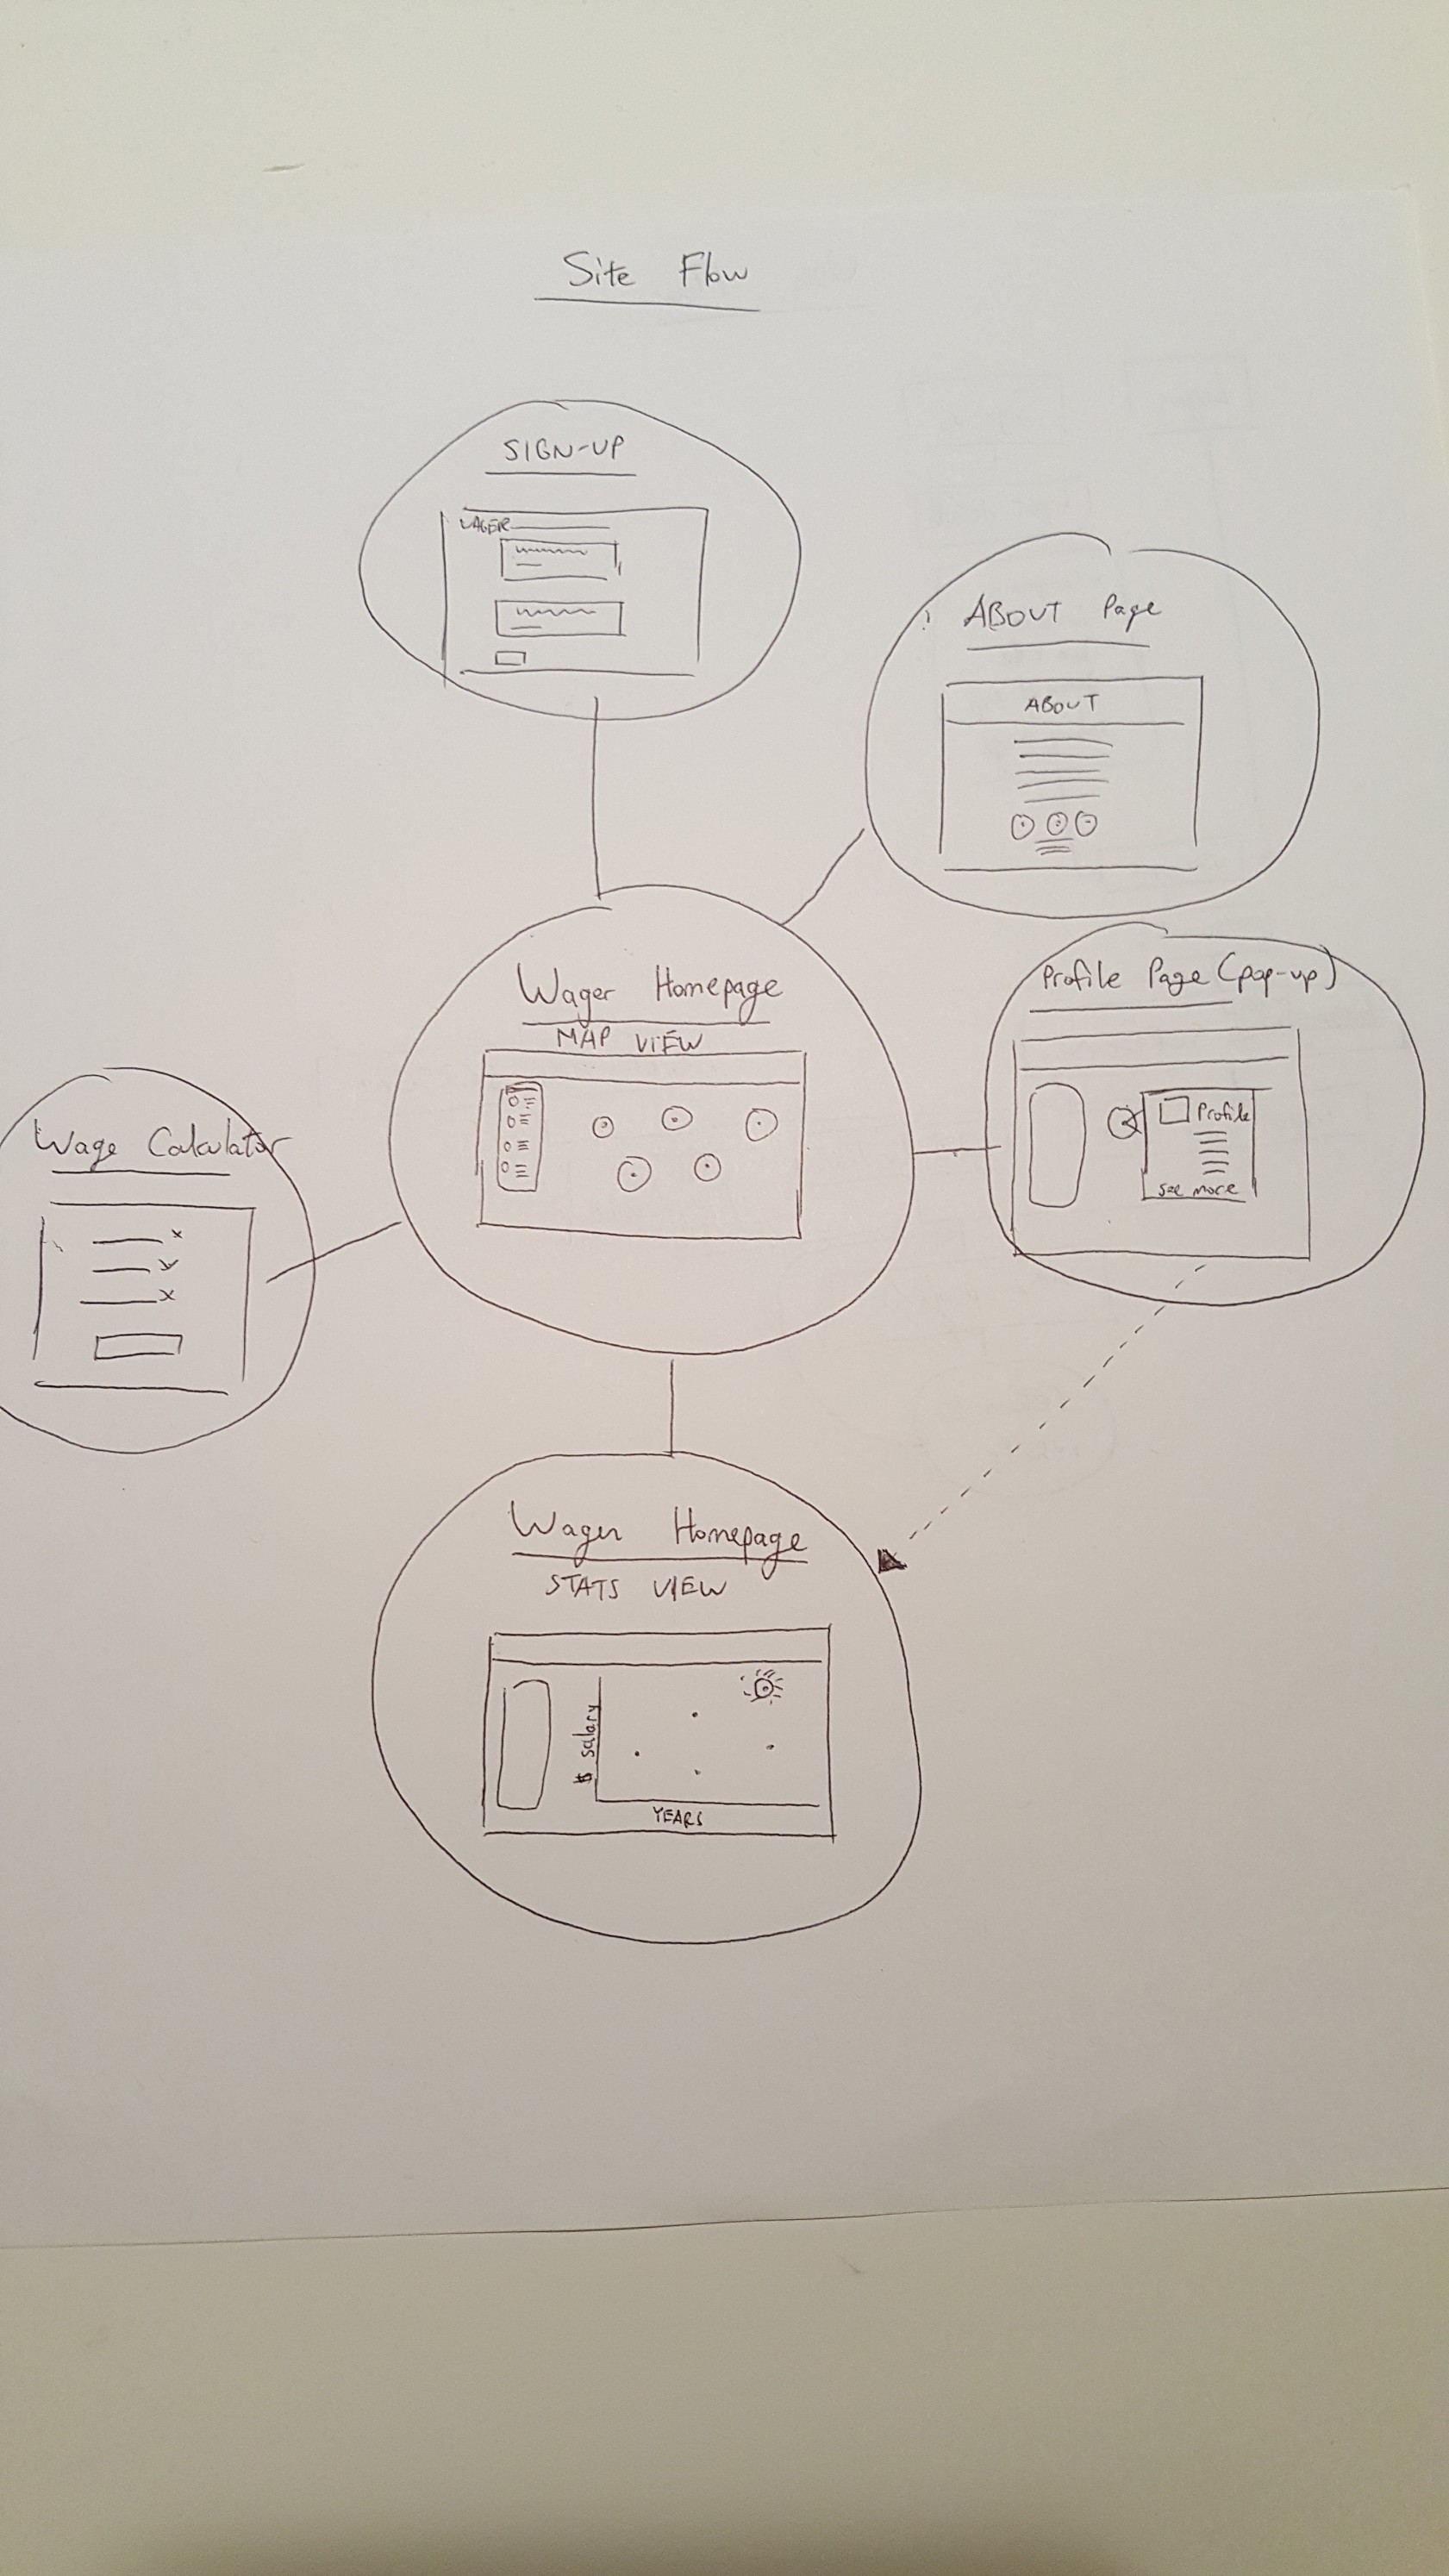 Site Flow
SIGN-UP
WAGER
ABOUT Page
ABOUT
Wager Homepage
MAP VIEW
Profile Page (pop-up)
Profile
see more
Wage Calculator
Wager Homepage
STATS VIEW
$ salary
YEARS